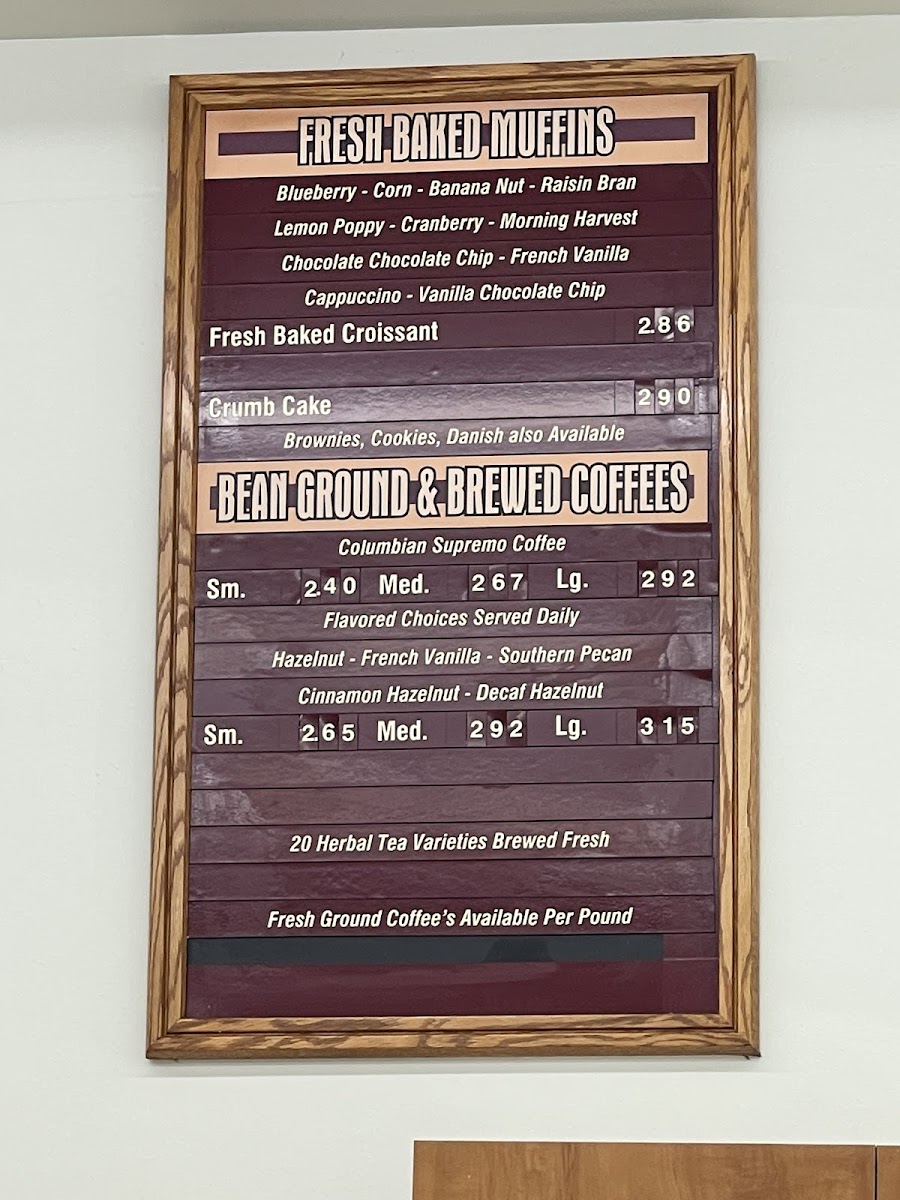 FRESH BAKED MUFFINS
Blueberry - Corn - Banana Nut - Raisin Bran
Lemon Poppy - Cranberry - Morning Harvest
Chocolate Chocolate Chip - French Vanilla
Cappuccino - Vanilla Chocolate Chip
Fresh Baked Croissant 2.86
Crumb Cake 290
Brownies, Cookies, Danish also Available
BEAN GROUND & BREWED COFFEES
Columbian Supremo Coffee
Sm. 2.40 Med. 267 Lg. 292
Flavored Choices Served Daily
Hazelnut - French Vanilla - Southern Pecan
Cinnamon Hazelnut - Decaf Hazelnut
Sm. 2.65 Med. 292 Lg. 315
20 Herbal Tea Varieties Brewed Fresh
Fresh Ground Coffee's Available Per Pound